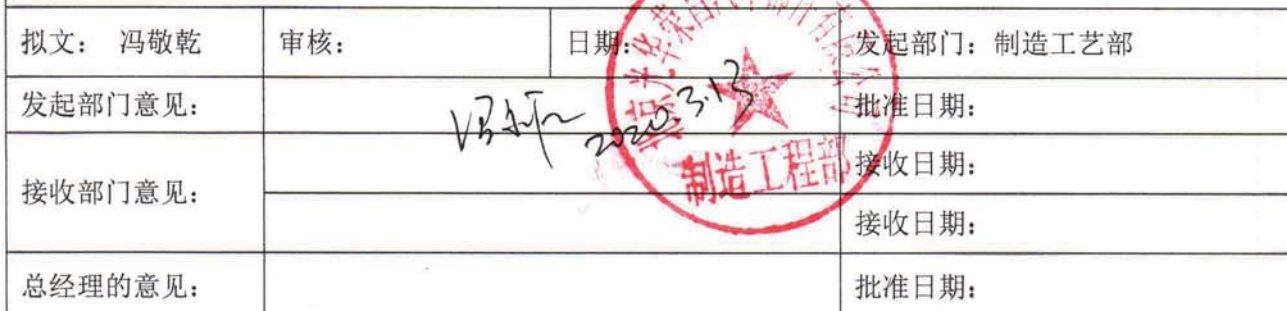 拟文: 冯敬乾 审核: 日期: 发起部门: 制造工艺部
发起部门意见: 2020.3.13 批准日期:
接收部门意见: 接收日期:
制造工程部
接收日期:
总经理的意见: 批准日期: